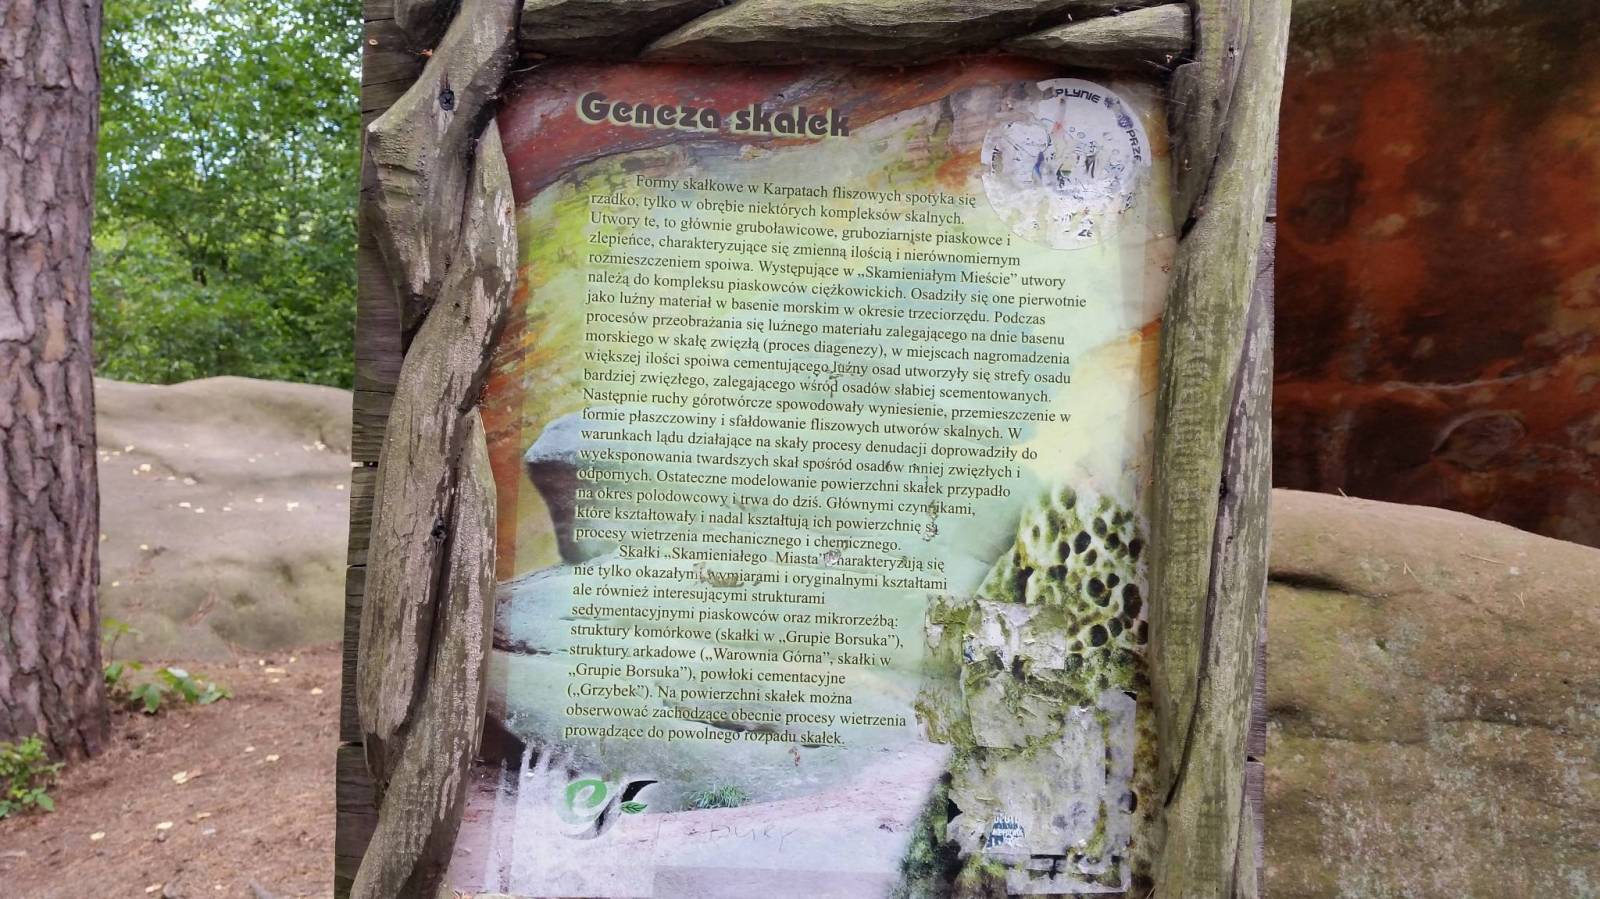 Geneza skałek
PŁYNIE
PRZE
Formy skałkowe w Karpatach fliszowych spotyka się
rzadko, tylko w obrębie niektórych kompleksów skalnych.
Utwory te, to głównie gruboławicowe, gruboziarniste piaskowce i
zlepieńce, charakteryzujące się zmienną ilością i nierównomiernym
rozmieszczeniem spoiwa. Występujące w „Skamieniałym Mieście” utwory
należą do kompleksu piaskowców ciężkowickich. Osadziły się one pierwotnie
jako luźny materiał w basenie morskim w okresie trzeciorzędu. Podczas
procesów przeobrażania się luźnego materiału zalegającego na dnie basenu
morskiego w skałę zwięzłą (proces diagenezy), w miejscach nagromadzenia
większej ilości spoiwa cementującego luźny osad utworzyły się strefy osadu
bardziej zwięzłego, zalegającego wśród osadów słabiej scementowanych.
Następnie ruchy górotwórcze spowodowały wyniesienie, przemieszczenie w
formie płaszczowiny i sfałdowanie fliszowych utworów skalnych. W
warunkach lądu działające na skały procesy denudacji doprowadziły do
wyeksponowania twardszych skał spośród osadów mniej zwięzłych i
odpornych. Ostateczne modelowanie powierzchni skałek przypadło
na okres polodowcowy i trwa do dziś. Głównymi czynnikami,
które kształtowały i nadal kształtują ich powierzchnię są
procesy wietrzenia mechanicznego i chemicznego.
Skałki „Skamieniałego Miasta” charakteryzują się
nie tylko okazałymi wymiarami i oryginalnymi kształtami
ale również interesującymi strukturami
sedymentacyjnymi piaskowców oraz mikrorzeźbą:
struktury komórkowe (skałki w „Grupie Borsuka”),
struktury arkadowe („Warownia Górna”, skałki w
„Grupie Borsuka”), powłoki cementacyjne
(„Grzybek”). Na powierzchni skałek można
obserwować zachodzące obecnie procesy wietrzenia
prowadzące do powolnego rozpadu skałek.